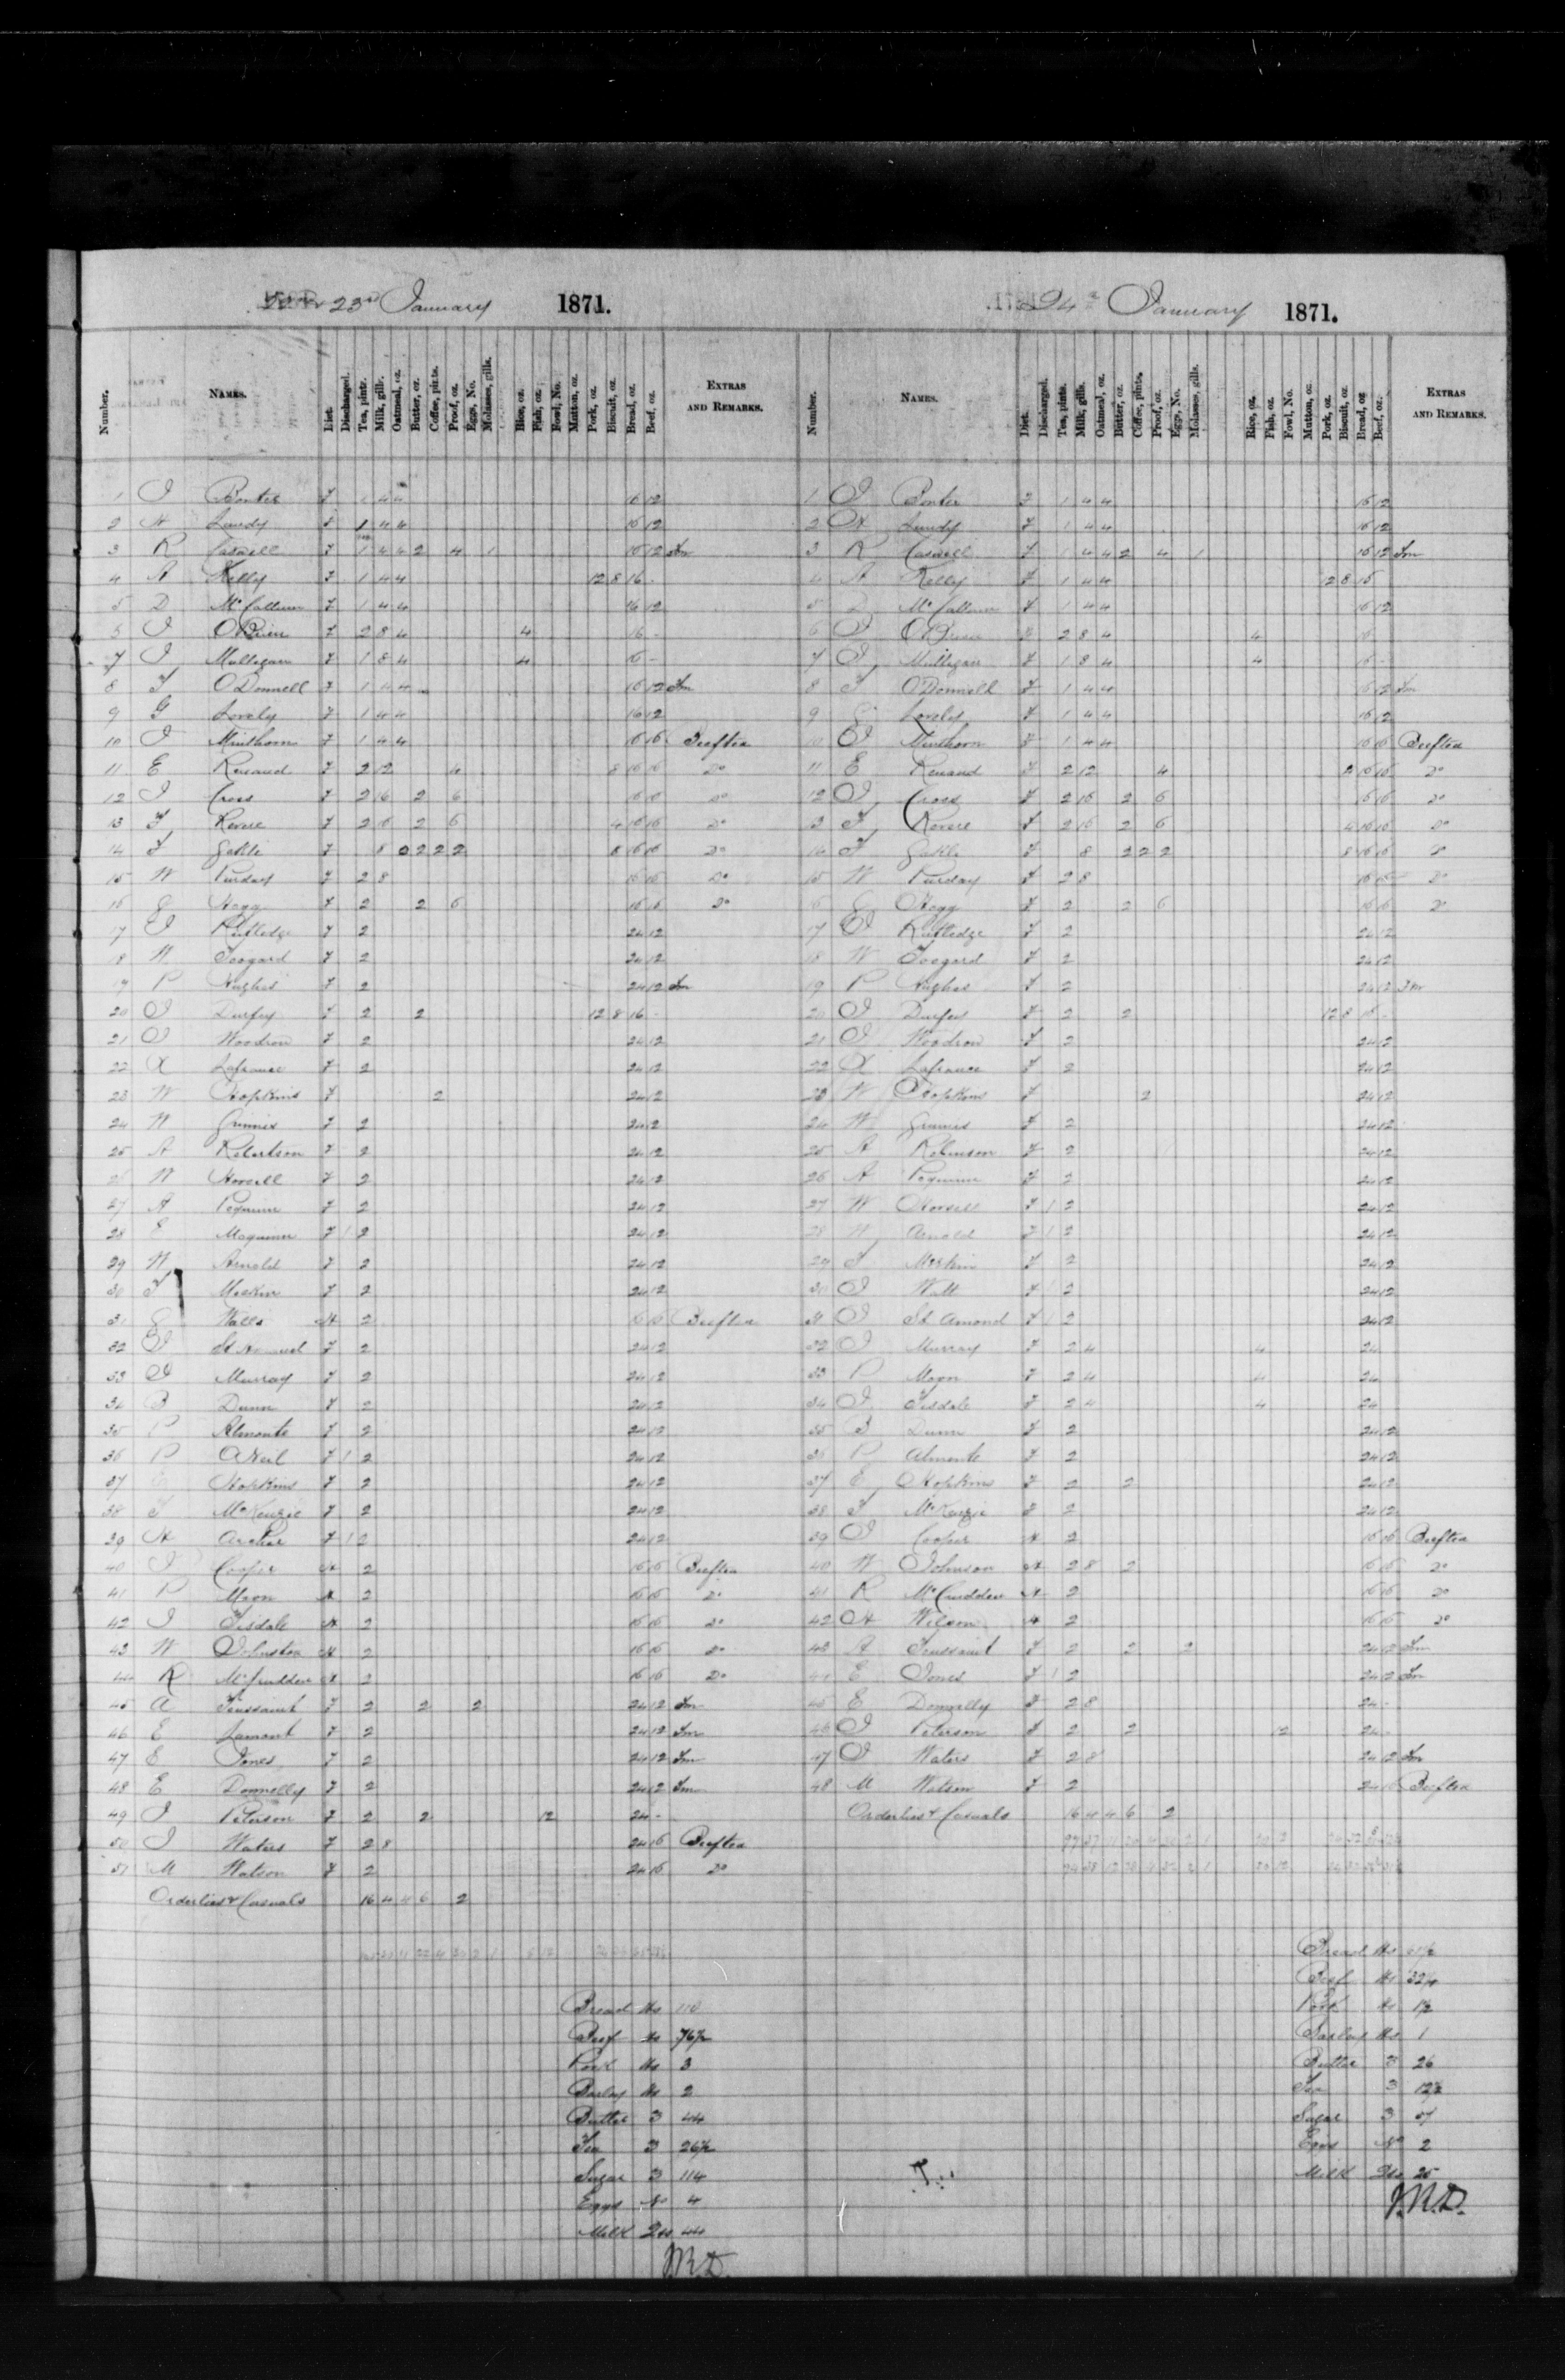 23rd January 1871.
Number. Names. Diet. Discharged. Tea, pints. Milk, gills. Oatmeal, oz. Butter, oz. Coffee, pints. Proof, oz. Eggs, No. Molasses, gills. Rice, oz. Fish, oz. Fowl, No. Mutton, oz. Pork, oz. Biscuit, oz. Bread, oz. Beef, oz. Extras and Remarks.
1 J Porter F 1 4 4 16 12
2 H Lundy F 1 4 4 16 12
3 R Caswell F 1 4 4 2 4 1 16 12
4 A Kelly F 1 4 4 12 8 16 -
5 D McCallum F 1 4 4 16 12
6 J OBrien F 2 8 4 4 16 -
7 J Mulligan F 1 8 4 4 16 -
8 T ODonnell F 1 4 4 16 12
9 G Lovely F 1 4 4 16 12
10 J Minthorn F 1 4 4 16 16 Beeftea
11 E Renaud F 2 12 4 8 16 16 Do
12 J Cross F 2 16 2 6 16 16 Do
13 F Revere F 2 16 2 6 4 16 16 Do
14 F F 8 2 2 2 8 16 16 Do
15 W Purday F 2 8 16 16 Do
16 Hogg F 2 2 6 16 16 Do
17 J Rutledge F 2 24 12
18 W Toogard F 2 24 12
19 P Hughes F 2 24 12
20 J Durfey F 2 2 12 8 16 -
21 J Woodrow F 2 24 12
22 A Lafrance F 2 24 12
23 W Hopkins F 2 24 12
24 W Grimes F 2 24 12
25 A Robertson F 2 24 12
26 W F 2 24 12
27 A F 2 24 12
28 E F 1 2 24 12
29 W Arnold F 2 24 12
30 F Meskin F 2 24 12
31 Walls H 2 16 16 Beeftea
32 J F 2 24 12
33 J Murray F 2 24 12
34 B Dunn F 2 24 12
35 P Almonte F 2 24 12
36 P ONeil F 1 2 24 12
37 E Hopkins F 2 24 12
38 F McKenzie F 2 24 12
39 H Archer F 1 2 24 12
40 J Cooper H 2 16 16 Beeftea
41 P Moon H 2 16 16 Do
42 J Tisdale H 2 16 16 Do
43 W Johnston H 2 16 16 Do
44 R McCrudden H 2 16 16 Do
45 A Toussaint F 2 2 2 24 12
46 E Lamont F 2 24 12
47 E Jones F 2 24 12
48 E Donnelly F 2 24 12
49 J Peterson F 2 2 12 24 -
50 J Waters F 2 8 24 16 Beeftea
51 M Watson F 2 24 16 Do
Orderlies & Casuals 16 4 4 6 2
Bread lbs 110
Beef lbs 76½
Pork lbs 3
Barley lbs 2
Butter 44
Tea 26½
Sugar 114
Eggs No 4
Milk Qts 44
24th January 1871.
Number. Names. Diet. Discharged. Tea, pints. Milk, gills. Oatmeal, oz. Butter, oz. Coffee, pints. Proof, oz. Eggs, No. Molasses, gills. Rice, oz. Fish, oz. Fowl, No. Mutton, oz. Pork, oz. Biscuit, oz. Bread, oz. Beef, oz. Extras and Remarks.
1 J Porter F 1 4 4 16 12
2 H Lundy F 1 4 4 16 12
3 R Caswell F 1 4 4 2 4 1 16 12
4 A Kelly F 1 4 4 12 8 16
5 D McCallum F 1 4 4 16 12
6 J OBrien F 2 8 4 4 16
7 J Mulligan F 1 8 4 4 16 -
8 T ODonnell F 1 4 4 16 12
9 G Lovely F 1 4 4 16 12
10 J Minthorn F 1 4 4 16 16 Beeftea
11 E Renaud F 2 12 4 8 16 16 Do
12 J Cross F 2 16 2 6 16 16 Do
13 F Revere F 2 16 2 6 4 16 16 Do
14 F F 8 2 2 2 8 16 16 Do
15 W Purday F 2 8 16 16 Do
16 Hogg F 2 2 6 16 16 Do
17 J Rutledge F 2 24 12
18 W Toogard F 2 24 12
19 P Hughes F 2 24 12
20 J Durfey F 2 2 12 8 16 -
21 J Woodrow F 2 24 12
22 A Lafrance F 2 24 12
23 W Hopkins F 2 24 12
24 W Grimes F 2 24 12
25 A Robinson F 2 24 12
26 A F 2 24 12
27 W F 1 2 24 12
28 W Arnold F 1 2 24 12
29 F Meskin F 2 24 12
30 J Watt F 1 2 24 12
31 J St Amond F 1 2 24 12
32 J Murray F 2 4 4 24
33 P Moon F 2 4 4 24
34 J Tisdale F 2 4 4 24
35 B Dunn F 2 24 12
36 P Almonte F 2 24 12
37 E Hopkins F 2 2 24 12
38 F McKenzie F 2 24 12
39 J Cooper H 2 16 16 Beeftea
40 W Johnson H 2 8 2 16 16 Do
41 R McCrudden H 2 16 16 Do
42 H Wilson H 2 16 16 Do
43 A Toussaint F 2 2 2 24 12
44 E Jones F 1 2 24 12
45 E Donnelly F 2 8 24 -
46 J Peterson F 2 2 12 24 -
47 J Waters F 2 8 24 12
48 M Watson F 2 24 16 Beeftea
Orderlies & Casuals 16 4 4 6 2
Bread lbs
Beef lbs
Pork lbs 1½
Barley lbs 1
Butter 26
Tea 12½
Sugar 57
Eggs No 2
Milk Qts 25